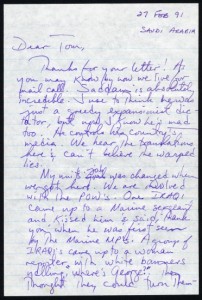 27 FEB 91
SAUDI ARABIA
Dear Tom,
Thanks for your letter! As
you may know by now we live for
mail call. Saddam is absolutely
incredible. I use to think he was
just a greedy expansionist dic-
tator, but now I know he's mad
too. He controls his country's
media. We hear the translations
here & can't believe the warped
lies.
My unit's was changed when
we got here. We are involved
with the POW's. One IRAQI
came up to a Marine sergeant
and kissed him & said, thank
you, when he was first seen
by the Marine MPs. A group of
IRAQI's came up to a woman
reporter, with white banners
yelling, where's George? They
thought they could turn them